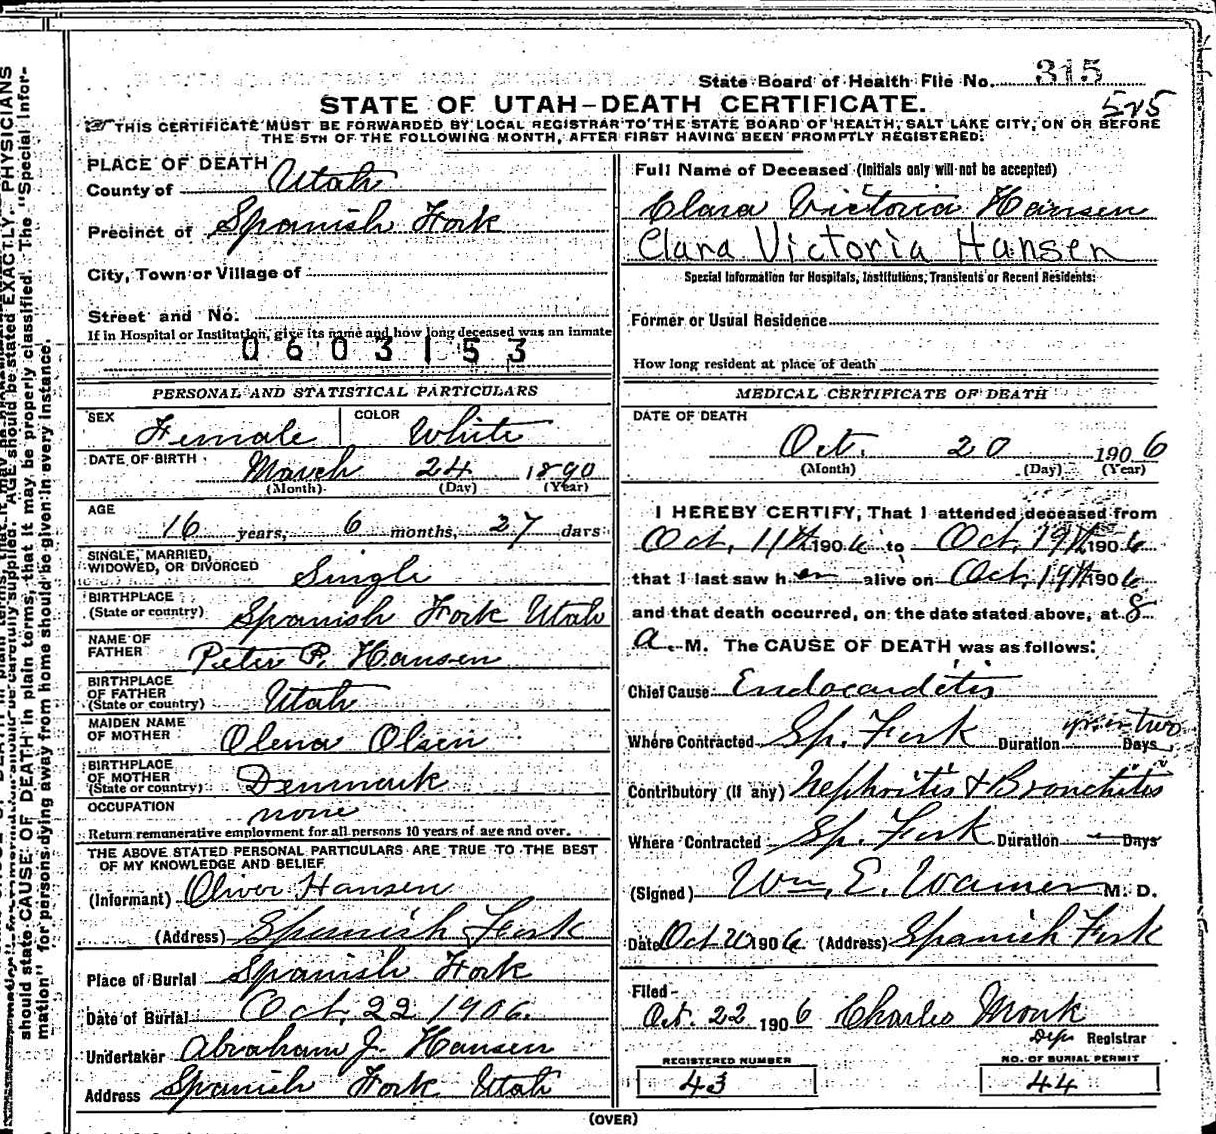 State Board of Health File No. 315
525
STATE OF UTAH—DEATH CERTIFICATE.
THIS CERTIFICATE MUST BE FORWARDED BY LOCAL REGISTRAR TO THE STATE BOARD OF HEALTH, SALT LAKE CITY, ON OR BEFORE
THE 5TH OF THE FOLLOWING MONTH, AFTER FIRST HAVING BEEN PROMPTLY REGISTERED.
PLACE OF DEATH
County of Utah
Precinct of Spanish Fork
City, Town or Village of
Street and No.
If in Hospital or Institution, give its name and how long deceased was an inmate
0603153
PERSONAL AND STATISTICAL PARTICULARS
SEX Female COLOR White
DATE OF BIRTH March 24 1890
(Month) (Day) (Year)
AGE
16 years, 6 months, 27 days
SINGLE, MARRIED,
WIDOWED, OR DIVORCED Single
BIRTHPLACE
(State or country) Spanish Fork Utah
NAME OF
FATHER Peter P. Hansen
BIRTHPLACE
OF FATHER
(State or country) Utah
MAIDEN NAME
OF MOTHER Olena Olsen
BIRTHPLACE
OF MOTHER
(State or country) Denmark
OCCUPATION none
Return remunerative employment for all persons 10 years of age and over.
THE ABOVE STATED PERSONAL PARTICULARS ARE TRUE TO THE BEST
OF MY KNOWLEDGE AND BELIEF
(Informant) Oliver Hansen
(Address) Spanish Fork
Place of Burial Spanish Fork
Date of Burial Oct. 22 1906.
Undertaker Abraham J. Hansen
Address Spanish Fork Utah
Full Name of Deceased (Initials only will not be accepted)
Clara Victoria Hansen
Clara Victoria Hansen
Special Information for Hospitals, Institutions, Transients or Recent Residents:
Former or Usual Residence
How long resident at place of death
MEDICAL CERTIFICATE OF DEATH
DATE OF DEATH
Oct. 20 1906
(Month) (Day) (Year)
I HEREBY CERTIFY, That I attended deceased from
Oct. 11th 1906 to Oct. 19th 1906
that I last saw her alive on Oct. 19th 1906
and that death occurred, on the date stated above, at 8
a. M. The CAUSE OF DEATH was as follows:
Chief Cause Endocarditis
Where Contracted Sp. Fork Duration yr or two Days
Contributory (if any) Nephritis & Bronchitis
Where Contracted Sp. Fork Duration Days
(Signed) Wm. E. Warner M. D.
Date Oct 20 1906 (Address) Spanish Fork
Filed
Oct. 22 1906 Charles Monk
Dep. Registrar
REGISTERED NUMBER
43
NO. OF BURIAL PERMIT
44
(OVER)
should state CAUSE OF DEATH in plain terms, that it may be properly classified. The "Special Infor-
mation" for persons dying away from home should be given in every instance.